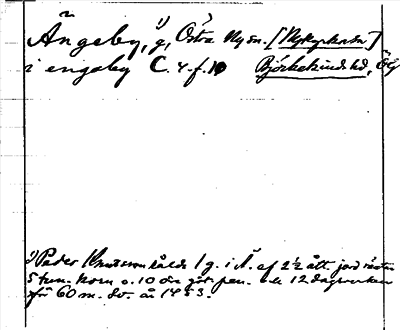 Ängeby, 1) g, Östra Ny sn. [Nykyrka sn.]
i engeby C. 4. f. 10 Björkekinds hd, Ög
1) Peder Knutsson sålde 1 g. i Ä. af 2½ ått. jord
5 tun. korn o. 10 öre pen. och 12 dagsverken
för 60 m. år 1453.